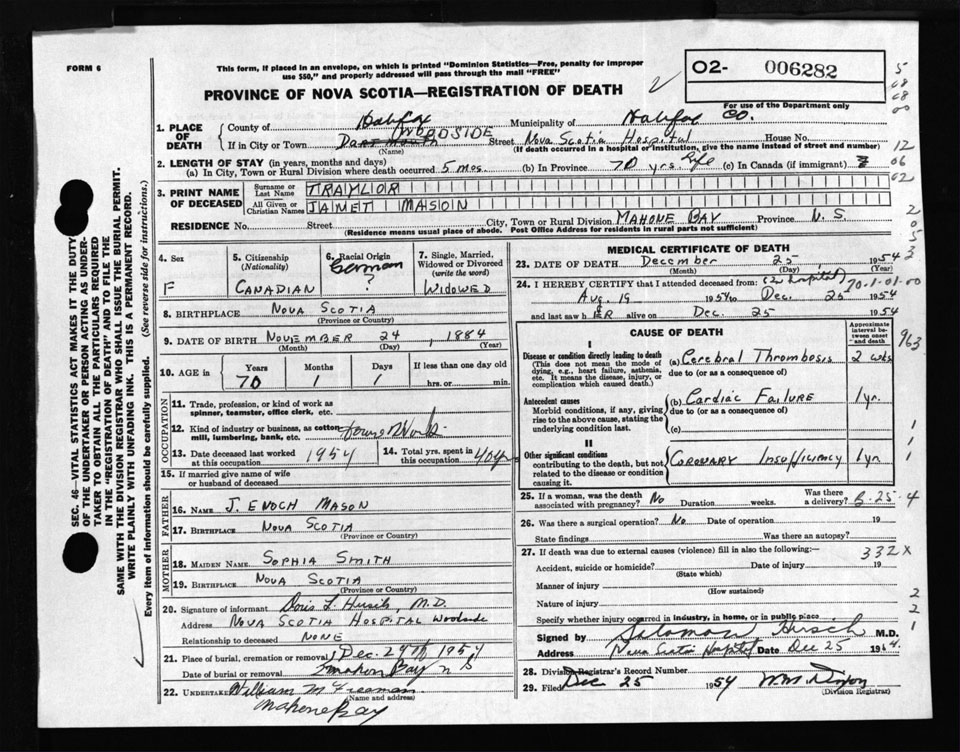 FORM 6
This form, if placed in an envelope, on which is printed "Dominion Statistics—Free, penalty for improper
use $50," and properly addressed will pass through the mail "FREE"
PROVINCE OF NOVA SCOTIA—REGISTRATION OF DEATH
O2- 006282
For use of the Department only
SEC. 46—VITAL STATISTICS ACT MAKES IT THE DUTY
OF THE UNDERTAKER OR PERSON ACTING AS UNDER-
TAKER TO OBTAIN ALL THE PARTICULARS REQUIRED
IN THE "REGISTRATION OF DEATH" AND TO FILE THE
SAME WITH THE DIVISION REGISTRAR WHO SHALL ISSUE THE BURIAL PERMIT.
WRITE PLAINLY WITH UNFADING INK. THIS IS A PERMANENT RECORD.
Every item of information should be carefully supplied. (See reverse side for instructions.)
1. PLACE OF DEATH
County of Halifax Municipality of Halifax Co.
If in City or Town Dartmouth WOODSIDE Street Nova Scotia Hospital House No.
(Name) (If death occurred in a hospital or institution, give the name instead of street and number)
2. LENGTH OF STAY (in years, months and days)
(a) In City, Town or Rural Division where death occurred 5 mos. (b) In Province 70 yrs. Life (c) In Canada (if immigrant)
3. PRINT NAME OF DECEASED
Surname or Last Name TRAYLOR
All Given or Christian Names JANET MASON
RESIDENCE No. Street City, Town or Rural Division MAHONE BAY Province N.S.
(Residence means usual place of abode. Post Office Address for residents in rural parts not sufficient)
4. Sex
F
5. Citizenship
(Nationality)
CANADIAN
6. Racial Origin
German
?
7. Single, Married,
Widowed or Divorced
(write the word)
WIDOWED
8. BIRTHPLACE NOVA SCOTIA
(Province or Country)
9. DATE OF BIRTH NOVEMBER 24, 1884
(Month) (Day) (Year)
10. AGE in
Years Months Days If less than one day old
70 1 1 hrs. or min.
OCCUPATION
11. Trade, profession, or kind of work as
spinner, teamster, office clerk, etc.
12. Kind of industry or business, as cotton
mill, lumbering, bank, etc.
13. Date deceased last worked
at this occupation 1954
14. Total yrs. spent in
this occupation
15. If married give name of wife
or husband of deceased
FATHER
16. Name J. ENOCH MASON
17. Birthplace NOVA SCOTIA
(Province or Country)
MOTHER
18. MAIDEN NAME SOPHIA SMITH
19. BIRTHPLACE NOVA SCOTIA
(Province or Country)
20. Signature of informant Doris L. M.D.
Address NOVA SCOTIA HOSPITAL Woodside
Relationship to deceased NONE
21. Place of burial, cremation or removal Dec. 29th 1954
Date of burial or removal Mahone Bay N S
22. Undertaker William M Freeman
(Name and address)
Mahone Bay
MEDICAL CERTIFICATE OF DEATH
23. DATE OF DEATH December 25, 1954
(Month) (Day) (Year)
24. I HEREBY CERTIFY that I attended deceased from: (in hospital)
Aug. 19 1954 to Dec. 25 1954
and last saw hER alive on Dec. 25 1954
CAUSE OF DEATH
Approximate interval between onset and death
I
Disease or condition directly leading to death
(This does not mean the mode of
dying, e.g., heart failure, asthenia,
etc. It means the disease, injury, or
complication which caused death.)
(a) Cerebral Thrombosis 2 wks
due to (or as a consequence of)
Antecedent causes
Morbid conditions, if any, giving
rise to the above cause, stating the
underlying condition last.
(b) Cardiac Failure 1 yr.
due to (or as a consequence of)
(c)
II
Other significant conditions
contributing to the death, but not
related to the disease or condition
causing it.
Coronary Insufficiency 1 yr.
25. If a woman, was the death
associated with pregnancy? No Duration weeks. Was there
a delivery?
26. Was there a surgical operation? No Date of operation 19
State findings Was there an autopsy?
27. If death was due to external causes (violence) fill in also the following:—
332 X
Accident, suicide or homicide? Date of injury 19
(State which)
Manner of injury
(How sustained)
Nature of injury
Specify whether injury occurred in industry, in home, or in public place
Signed by Solomon Hirsch M.D.
Address Nova Scotia Hospital Date Dec 25 19
28. Division Registrar's Record Number
29. Filed Dec 25 1954
(Division Registrar)